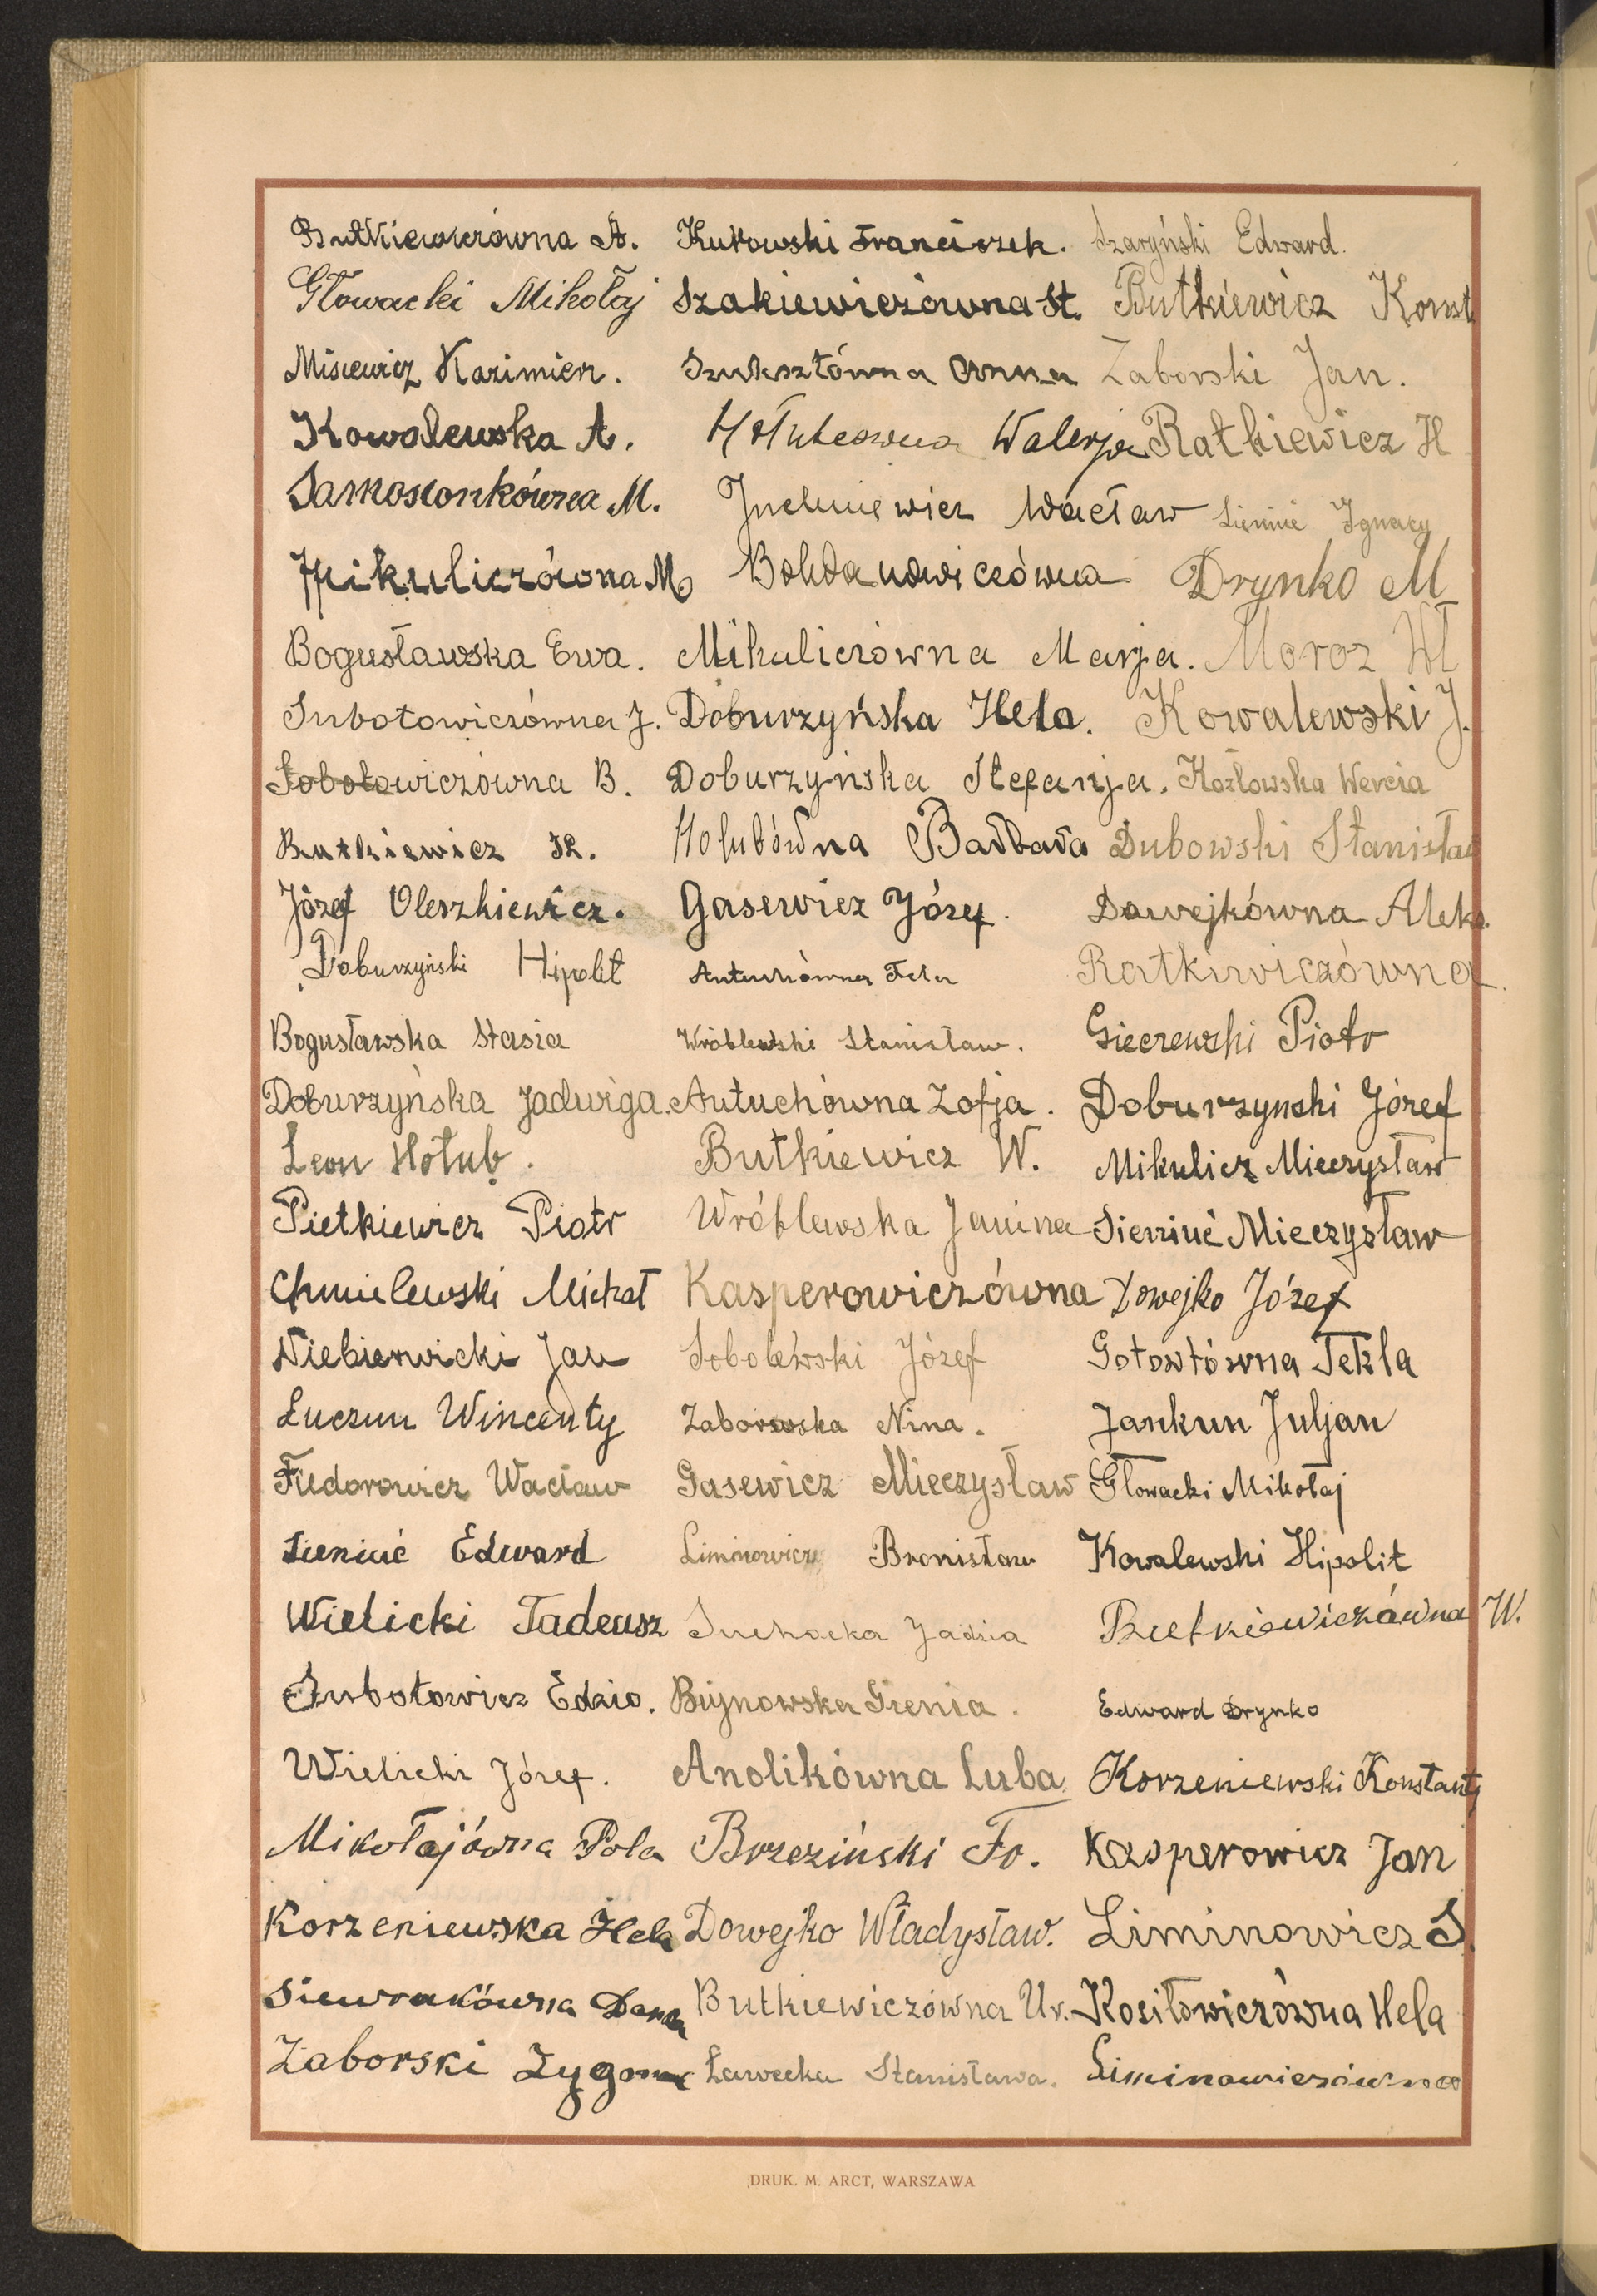 Butkiewiczówna A. Kutowski Franciszek. Szaryński Edward.
Głowacki Mikołaj Szakiewiczówna St. Butkiewicz Konst
Misiewicz Kazimierz. Szuksztówna Anna Zaborski Jan.
Kowalewska A. Hołubowna Walerja Ratkiewicz H
Samosionkówna M. Juchniewicz Wacław Sieniuć Ignacy
Mikuliczówna M. Bohdanowiczówna Drynko M
Bogusławska Ewa. Mikuliczówna Marja. Moroz Wł
Subotowiczówna J. Doburzyńska Hela. Kowalewski J.
Sobotowiczówna B. Doburzyńska Stefanja. Kozłowska Wercia
Butkiewicz St. Hołubówna Barbara Dubowski Stanisław
Józef Oleszkiewicz. Gasewicz Józef. Dawejkówna Aleks.
Doburzyński Hipolit Antuchówna Fela Ratkiewiczówna.
Bogusławska Stasia Wróblewski Stanisław. Gieczewski Piotr
Doburzyńska Jadwiga. Antuchówna Zofja. Doburzynski Józef
Leon Hołub. Butkiewicz W. Mikulicz Mieczysław
Pietkiewicz Piotr Wróblewska Janina Sieniuć Mieczysław
Chmielewski Michał Kasperowiczówna Dowejko Józef
Niebierwicki Jan Sobolewski Józef Gotowtówna Tekla
Łuczun Wincenty Zaborowska Nina. Jankun Juljan
Fiedorowicz Wacław Gasewicz Mieczysław Głowacki Mikołaj
Sieniuć Edward Liminowicz Bronisław Kowalewski Hipolit
Wielicki Tadeusz Suchocka Jadzia Butkiewiczówna W.
Subotowicz Edzio. Bujnowska Gienia. Edward Drynko
Wielicki Józef. Anolikówna Luba Korzeniewski Konstanty
Mikołajówna Pola Brzeziński Fr. Kasperowicz Jan
Korzeniewska Hela Dowejko Władysław. Liminowicz S.
Siewrakówna Dana Butkiewiczówna Ur. Kosiłowiczówna Hela
Zaborski Zygm Ławecka Stanisława. Liminowiczówna
DRUK. M. ARCT, WARSZAWA